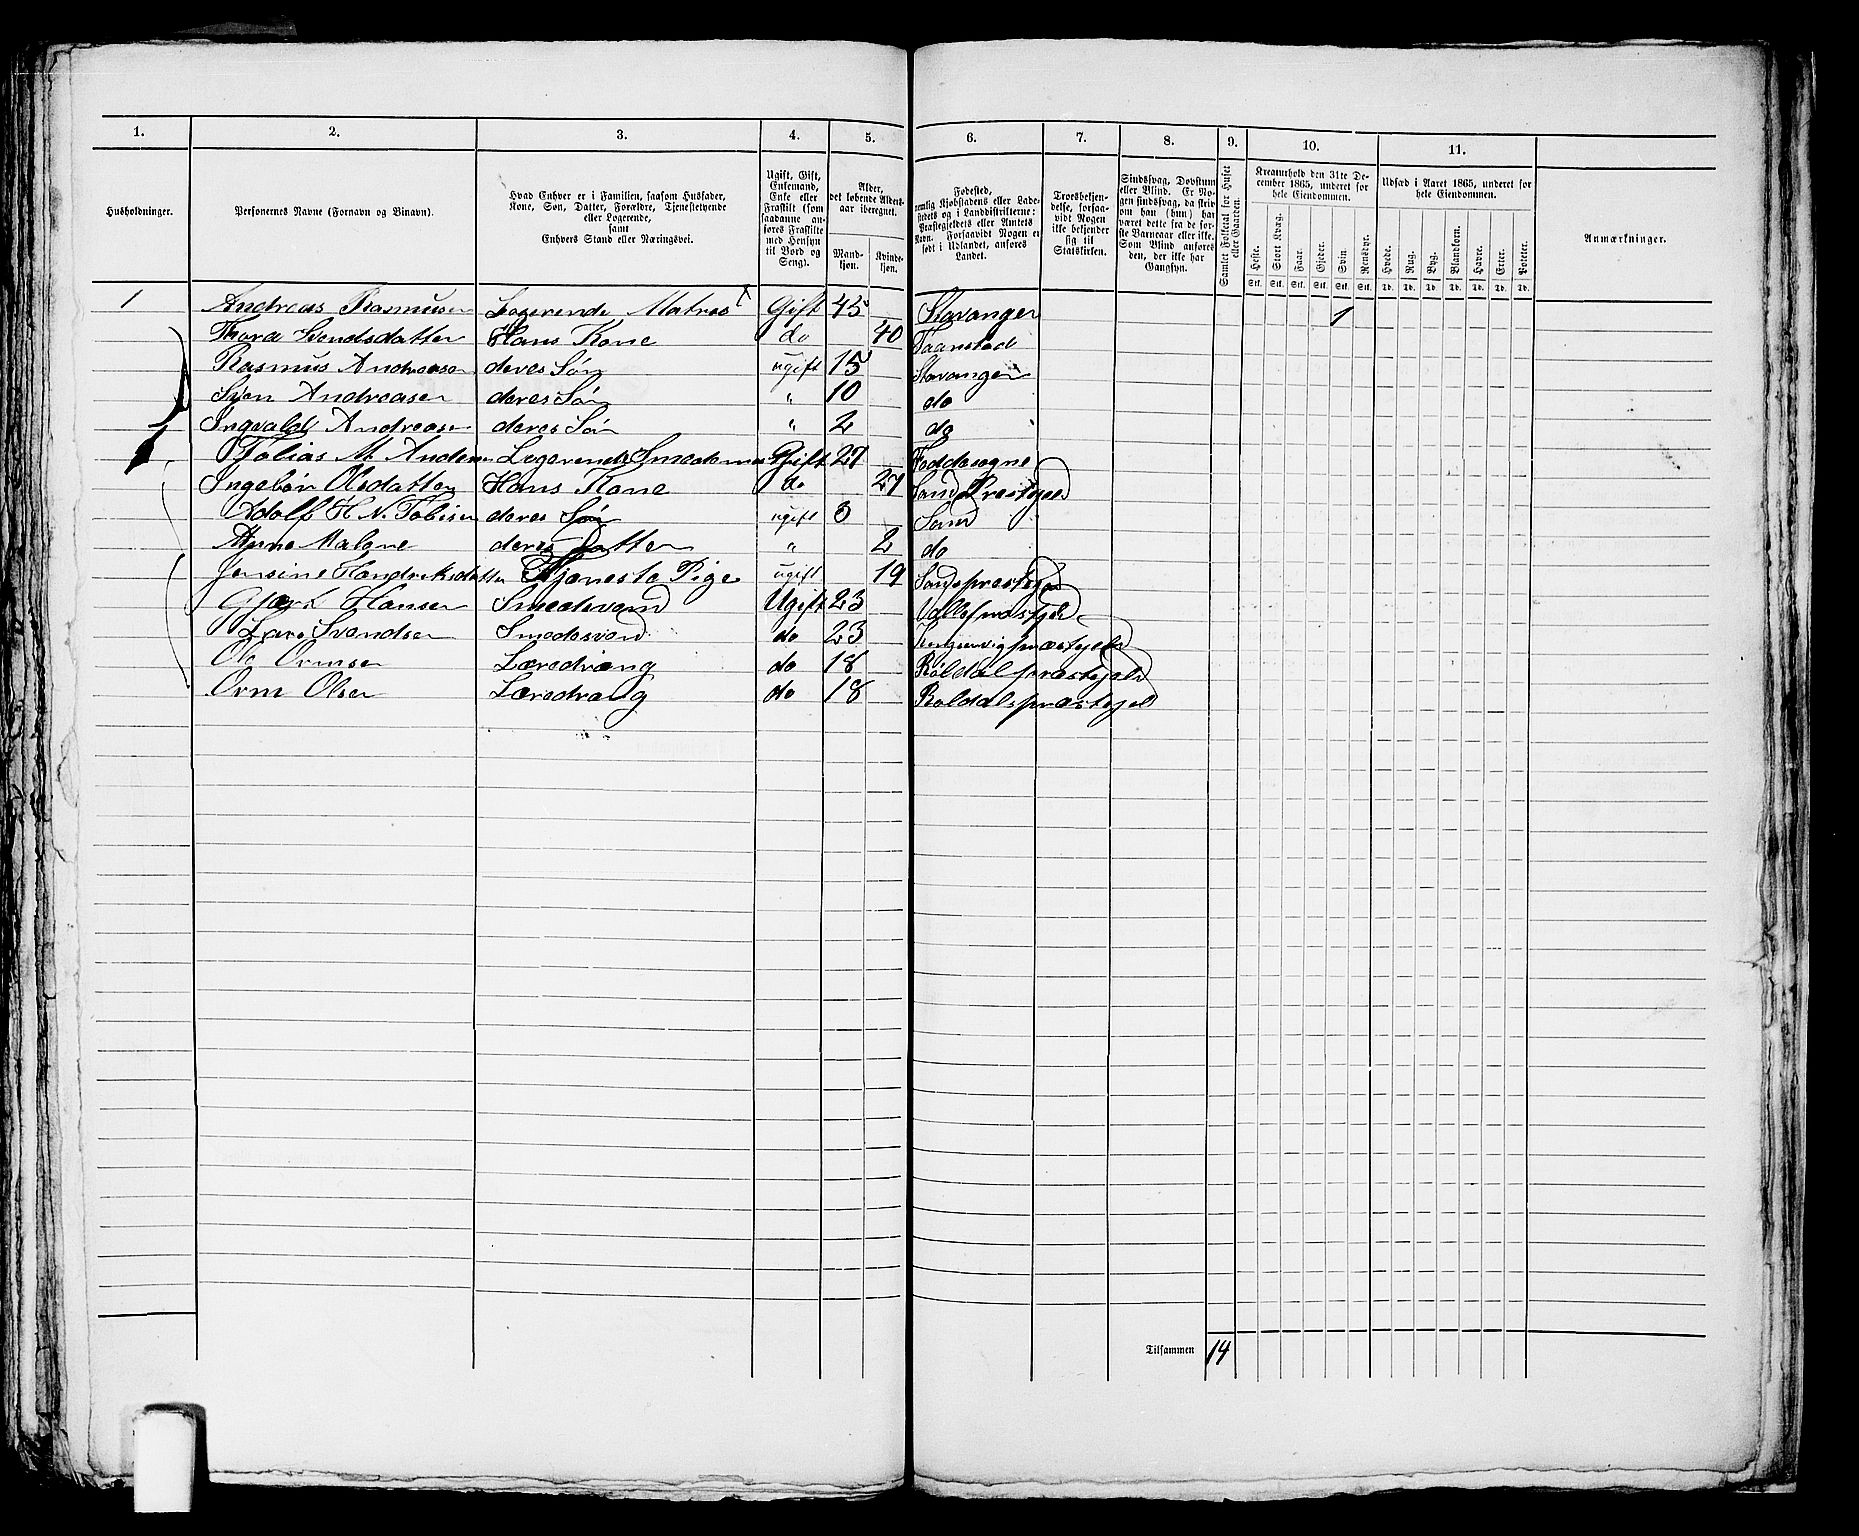 1. 2. 3. 4. 5. 6. 7. 8. 9. 10. 11.
Husholdninger.
Personernes Navne (Fornavn og Binavn).
Hvad Enhver er i Familien, saasom Husfader,
Kone, Søn, Datter, Forældre, Tjenestetyende
eller Logerende,
samt
Enhvers Stand eller Næringsvei.
Ugift, Gift,
Enkemand,
Enke eller
Fraskilt (som
saadanne an-
føres Fraskilte
med Hensyn
til Bord og
Seng).
Alder,
det løbende Alders-
aar iberegnet.
Mand-
kjøn.
Kvinde-
kjøn.
Fødested,
nemlig Kjøbstadens eller Lade-
stedets og i Landdistrikterne:
Præstegjeldets eller Amtets
Navn. Forsaavidt Nogen er
født i Udlandet, anføres
Landet.
Troesbekjen-
delse, forsaa-
vidt Nogen
ikke bekjender
sig til
Statskirken.
Sindssvag, Døvstum
eller Blind. Er No-
gen sindssvag, da skriv
om han (hun) har
været dette fra de før-
ste Barneaar eller ikke.
Som Blind anføres
den, der ikke har
Gangsyn.
Samlet Folketal for Huset
eller Gaarden.
Kreaturhold den 31te De-
cember 1865, underet for
hele Eiendommen.
Heste. Stort Kvæg. Faar. Gjeder. Svin. Rensdyr.
Stk. Stk. Stk. Stk. Stk. Stk.
Udsæd i Aaret 1865, underet for
hele Eiendommen.
Hvede. Rug. Byg. Blandkorn. Havre. Erter. Poteter.
Td. Td. Td. Td. Td. Td. Td.
Anmærkninger.
1 Andreas Rasmusen Logerende Matros Gift 45 Stavanger 1
Thora Svendsdatter Hans Kone do 40
Rasmus Andreasen deres Søn ugift 15 Stavanger
Sven Andreasen deres Søn " 10 do
Ingvald Andreasen deres Søn " 2 do
1 Tobias M. Gift 27
Ingebør Olsdatter Hans Kone do 27 Sand Prestejeld
Adolf H N. Tobisen deres Søn ugift 3 Sand
Anne Malene deres Datter " 2 do
Jensine Hendreksdatter Tjeneste Pige ugift 19 Sandspræstejeld
Hansen Smedsvend Ugift 23
Lars Svendsen Smedesvend do 23
Ole Ormsen Læredræng do 18 Røldalspræstejeld
Orm Olsen Læredræng do 18 Røldalspræstejeld
Tilsammen 14